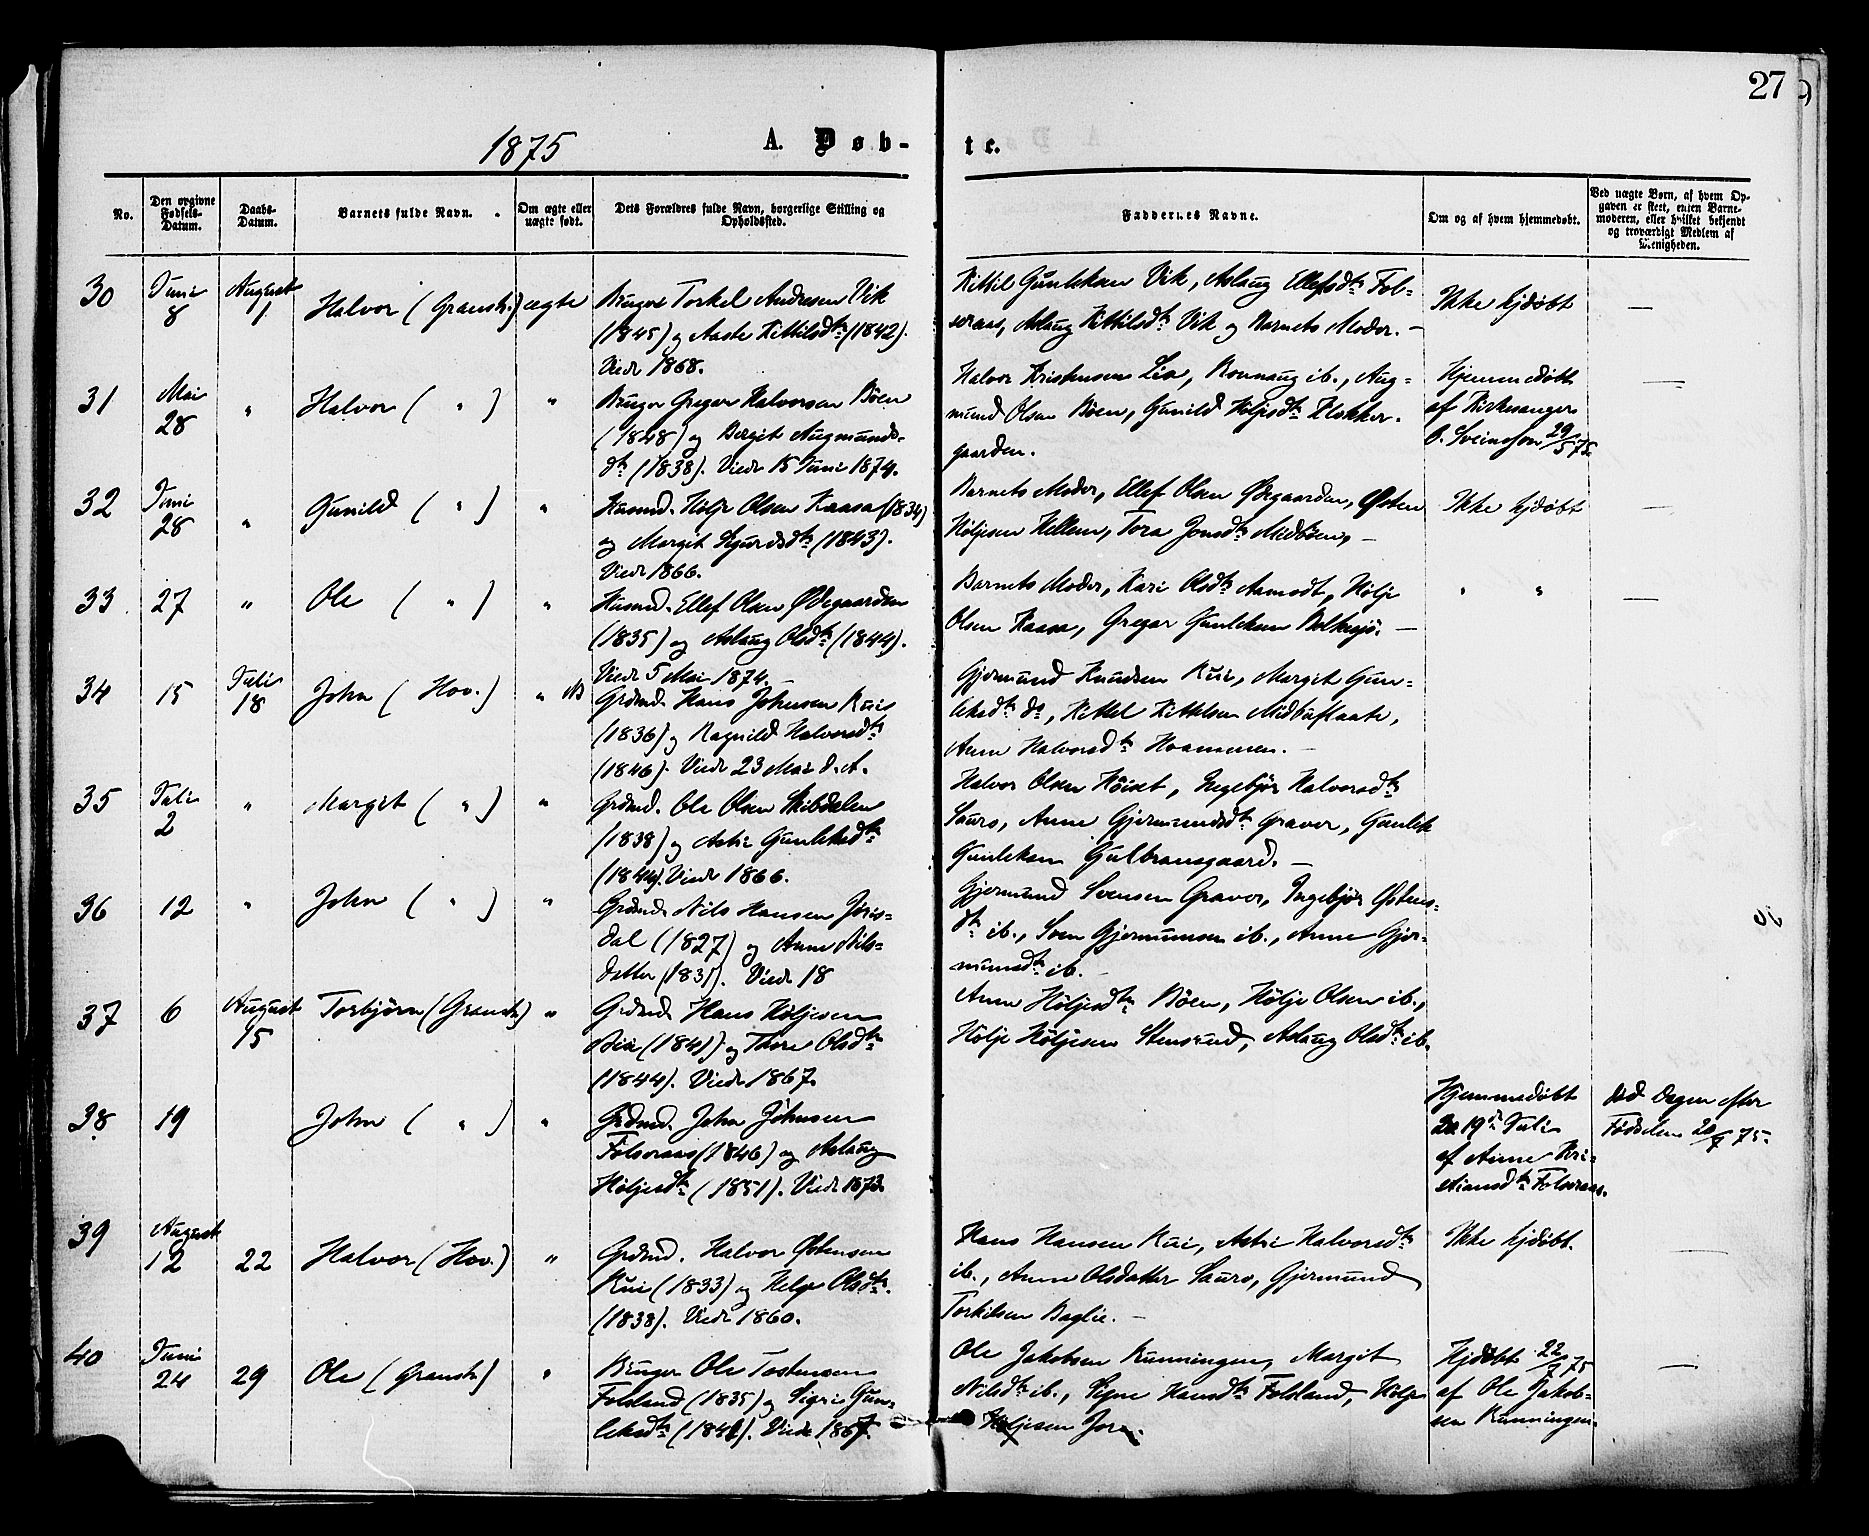 27
1875 A. Døb- te.
No.
Den opgivne Fødsels-Datum.
Daabs-Datum.
Barnets fulde Navn.
Om ægte eller uægte født.
Dets Forældres fulde Navn, borgerlige Stilling og Opholdssted.
Faddernes Navne.
Om og af hvem hjemmedøbt.
Ved uægte Børn, af hvem Opgaven er skeet, enten Barnemoderen, eller hvilket bekjendt og troværdigt Medlem af Menigheden.
30 Juni 8 August 1 Halvor (Gransh.) ægte
Bruger Torkel Andresen Vik
(1845) og Aaste Kittilsdtr (1842).
Viede 1868.
Kittil Gunleksen Vik, Aslaug Ellefsdtr Fol-
seraas, Aslaug Kittilsdtr Vik og Barnets Moder. —
Ikke hjdøbt —
31 Mai 28 " Halvor ( " ) "
Bruger Gregar Halvorsen Böen
(1848) og Berget Augmunds-
dtr (1838). Viede 15 Juni 1874.
Halvor Kristensen Lia, Rounaug ib., Aug-
mund Olsen Böen, Gunild Höljesdtr Klokker-
gaarden.
Hjemmedøbt
af Kirkesanger
O. Sveinsson 29/5 75. —
32 Juni 28 " Gunild ( " ) "
Husmd. Hölje Olsen Kaasa (1834)
og Margit Sgurdsdtr (1843).
Viede 1866.
Barnets Moder, Ellef Olsen Ødegaarden, Østen
Höljesen Hellem, Tora Jonsdtr Medböen, —
Ikke hjdøbt —
33. 27 " Ole ( " ) "
Husmd. Ellef Olsen Ødegaarden
(1835) og Aslaug Olsdtr (1844).
Viede 5 Mai 1874.
Barnets Moder, Kari Olsdtr Aamodt, Hölje
Olsen Kaasa, Gregar Gunleksen Bolkesjö. —
" " —
34 15 Juli 18 John ( Hov. ) " NB
Grdmd. Hans Johnsen Rui
(1836) og Ragnild Halvorsdtr
(1846). Viede 23 Mai d. A.
Gjermund Knudsen Rui, Margit Gun-
leksdtr do, Kittel Kittelsen Midbuslaate,
Anne Halvorsdtr Hvammen. —
35 Juli 2 " Margit ( " ) "
Grdmd. Ole Olsen Skibdalen
(1838) og Astri Gunleksdtr
(1844). Viede 1866.
Halvor Olsen Höiset, Ingebjör Halvorsdtr
Sauro, Anne Gjermundsdtr Graver, Gunlek
Gunleksen Gulbransgaard. —
36 12 " John ( " ) "
Grdmd. Nils Hansen Jöris-
dal (1827) og Anne Nils-
datter (1831). Viede 18
Gjermund Svensen Graver, Ingebjör Østens-
dtr ib., Sven Gjermunsen ib., Anne Gjer-
munsdtr ib. —
37 6 August 15 Torbjörn (Gransh.) "
Grdmd. Hans Höljesen
Bia (1841) og Thore Olsdtr
(1844). Viede 1867.
Anne Höljesdtr Böen, Hölje Olsen ib.,
Hölje Höljesen Stensrud, Aslaug Olsdtr ib.
38 19 John ( " ) "
Grdmd. John Johnsen
Folseraas (1846) og Aslaug
Höljesdtr (1851). Viede 1873.
Hjemmedøbt
19de Juli
af Anne Kri-
stiansdtr Folseraas.
Död Dagen efter
Födselen 20/7 75.
39 August 12 22 Halvor (Hov.) "
Grdmd. Halvor Østensen
Rui (1833) og Helge Olsdtr.
(1838). Viede 1860.
Hans Hansen Rui, Astri Halvorsdtr
ib., Anne Olsdatter Sauro, Gjermund
Torkilsen Baglie. —
Ikke hjdøbt. —
40 Juni 24 29 Ole (Gransh.) "
Bruger Ole Tostensen
Folsland (1835) og Sigri Gun-
leksdtr (184). Viede 1867.
Ole Jakobsen Runningen, Margit
Nilsdtr ib., Signe Hansdtr Folsland, Hölje
Höljesen Jore.
Hjdøbt 22/7 75
af Ole Jakob-
sen Runningen. —